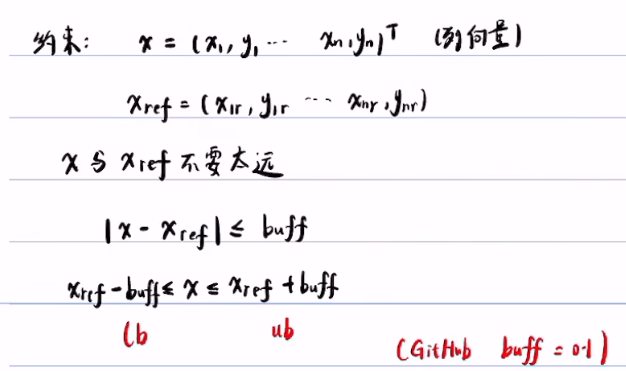 约束: x = (x₁, y₁ ⋯ xₙ, yₙ)ᵀ (列向量)
xref = (x₁r, y₁r ⋯ xnr, ynr)
x 与 xref 不要太远
|x - xref| ≤ buff
xref - buff ≤ x ≤ xref + buff
lb ub (GitHub buff = 0.1)